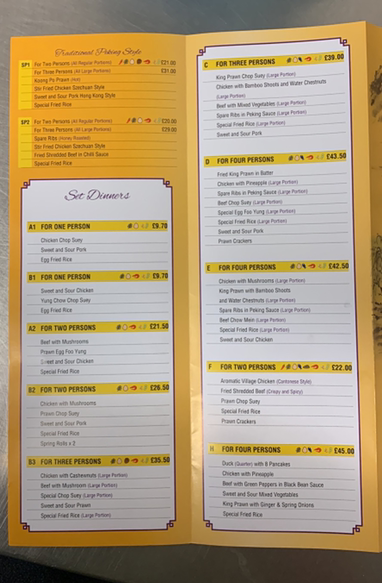 Traditional Peking Style
SP1 For Two Persons (All Regular Portions) £21.00
For Three Persons (All Large Portions) £31.00
Koong Po Prawn (Hot)
Stir Fried Chicken Szechuan Style
Sweet and Sour Pork Hong Kong Style
Special Fried Rice
SP2 For Two Persons (All Regular Portions) £20.00
For Three Persons (All Large Portions) £29.00
Spare Ribs (Honey Roasted)
Stir Fried Chicken Szechuan Style
Fried Shredded Beef in Chilli Sauce
Special Fried Rice
Set Dinners
A1 FOR ONE PERSON £9.70
Chicken Chop Suey
Sweet and Sour Pork
Egg Fried Rice
B1 FOR ONE PERSON £9.70
Sweet and Sour Chicken
Yung Chow Chop Suey
Egg Fried Rice
A2 FOR TWO PERSONS £21.50
Beef with Mushrooms
Prawn Egg Foo Yung
Sweet and Sour Chicken
Special Fried Rice
B2 FOR TWO PERSONS £26.50
Chicken with Mushrooms
Prawn Chop Suey
Sweet and Sour Pork
Special Fried Rice
Spring Rolls x 2
B3 FOR THREE PERSONS £35.50
Chicken with Cashewnuts (Large Portion)
Beef with Mushroom (Large Portion)
Special Chop Suey (Large Portion)
Sweet and Sour Prawn
Special Fried Rice (Large Portion)
C FOR THREE PERSONS £39.00
King Prawn Chop Suey (Large Portion)
Chicken with Bamboo Shoots and Water Chestnuts
(Large Portion)
Beef with Mixed Vegetables (Large Portion)
Spare Ribs in Peking Sauce (Large Portion)
Special Fried Rice (Large Portion)
Sweet and Sour Pork
D FOR FOUR PERSONS £43.50
Fried King Prawn in Batter
Chicken with Pineapple (Large Portion)
Spare Ribs in Peking Sauce (Large Portion)
Beef Chop Suey (Large Portion)
Special Egg Foo Yung (Large Portion)
Special Fried Rice (Large Portion)
Sweet and Sour Pork
Prawn Crackers
E FOR FOUR PERSONS £42.50
Chicken with Mushrooms (Large Portion)
King Prawn with Bamboo Shoots
and Water Chestnuts (Large Portion)
Spare Ribs in Peking Sauce (Large Portion)
Beef Chow Mein (Large Portion)
Special Fried Rice (Large Portion)
Sweet and Sour Chicken
F FOR TWO PERSONS £22.00
Aromatic Village Chicken (Cantonese Style)
Fried Shredded Beef (Crispy and Spicy)
Prawn Chop Suey
Special Fried Rice
Prawn Crackers
H FOR FOUR PERSONS £45.00
Duck (Quarter) with 8 Pancakes
Chicken with Pineapple
Beef with Green Peppers in Black Bean Sauce
Sweet and Sour Mixed Vegetables
King Prawn with Ginger & Spring Onions
Special Fried Rice